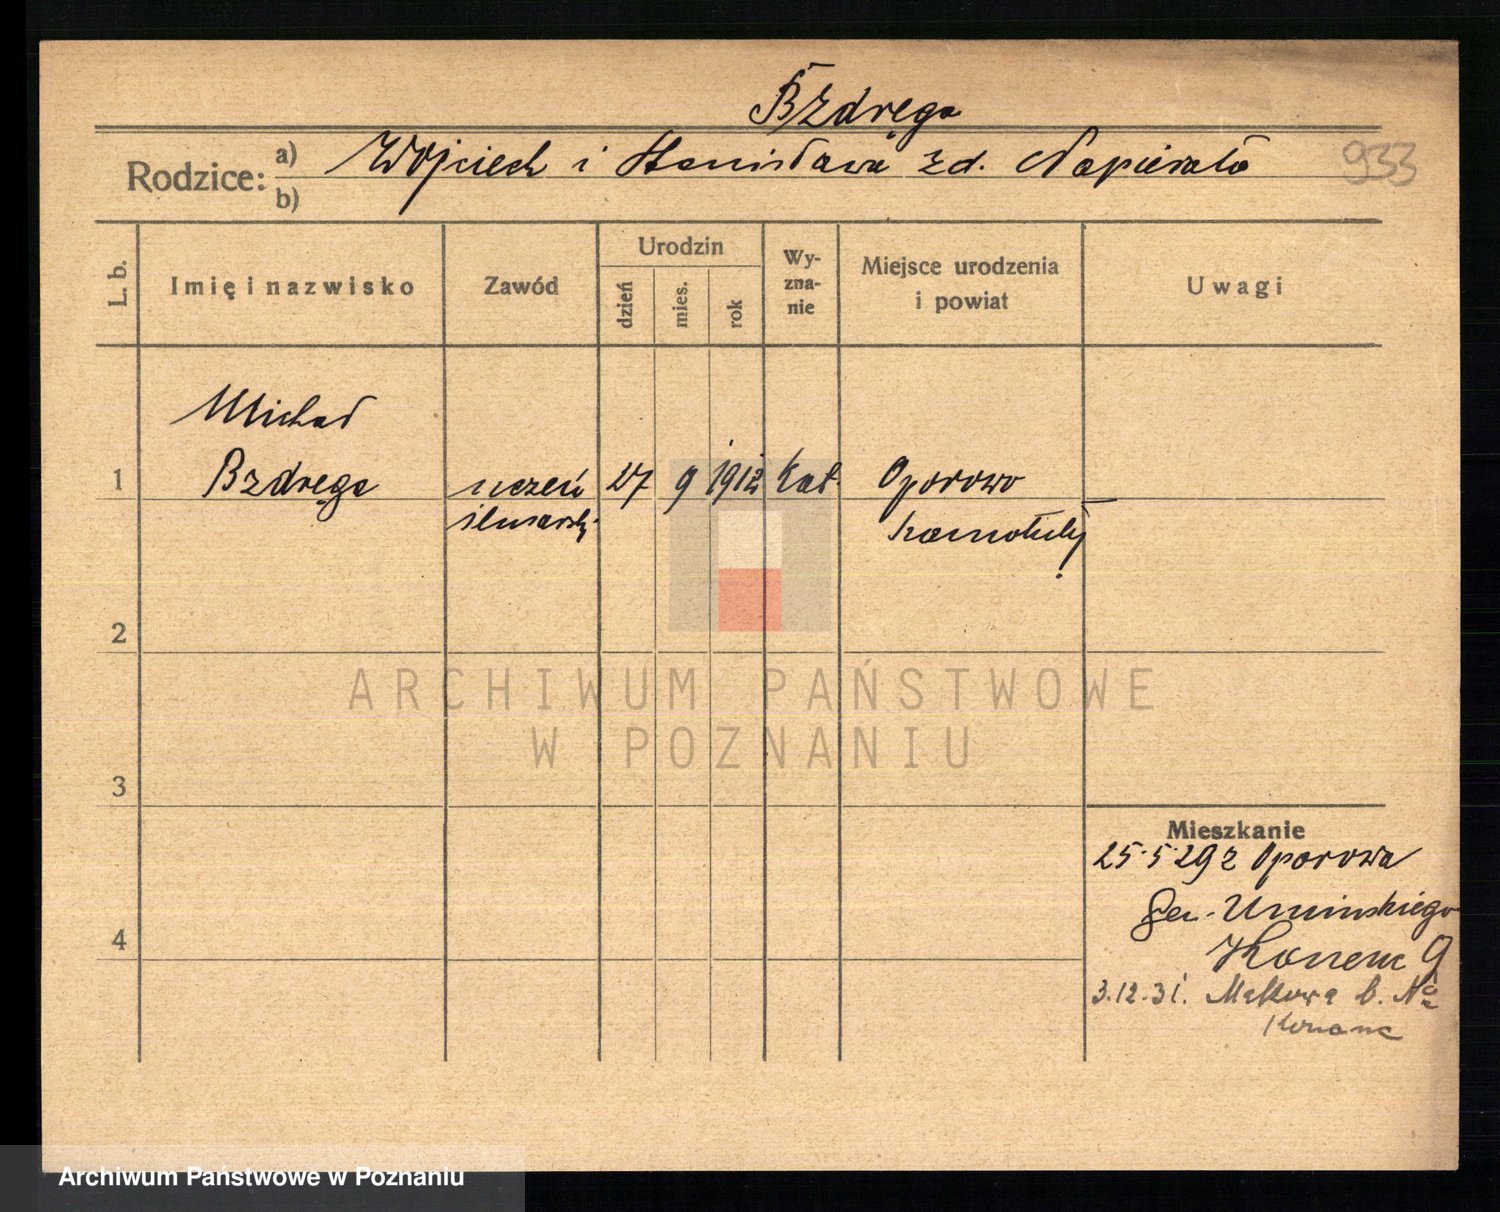 Bzdręga
Rodzice: a) Wojciech i Stanisława zd. Napierała
b)
933
L. b.
Imię i nazwisko
Zawód
Urodzin
dzień
mies.
rok
Wy-
zna-
nie
Miejsce urodzenia
i powiat
Uwagi
Michał
1 Bzdręga uczeń 27 9 1912 kat. Oporowo
ślusarski
2
3
4
ARCHIWUM PAŃSTWOWE
W POZNANIU
Mieszkanie
25.5.29 z Oporowa
Gen. Umińskiego
9
3.12.31.
Archiwum Państwowe w Poznaniu